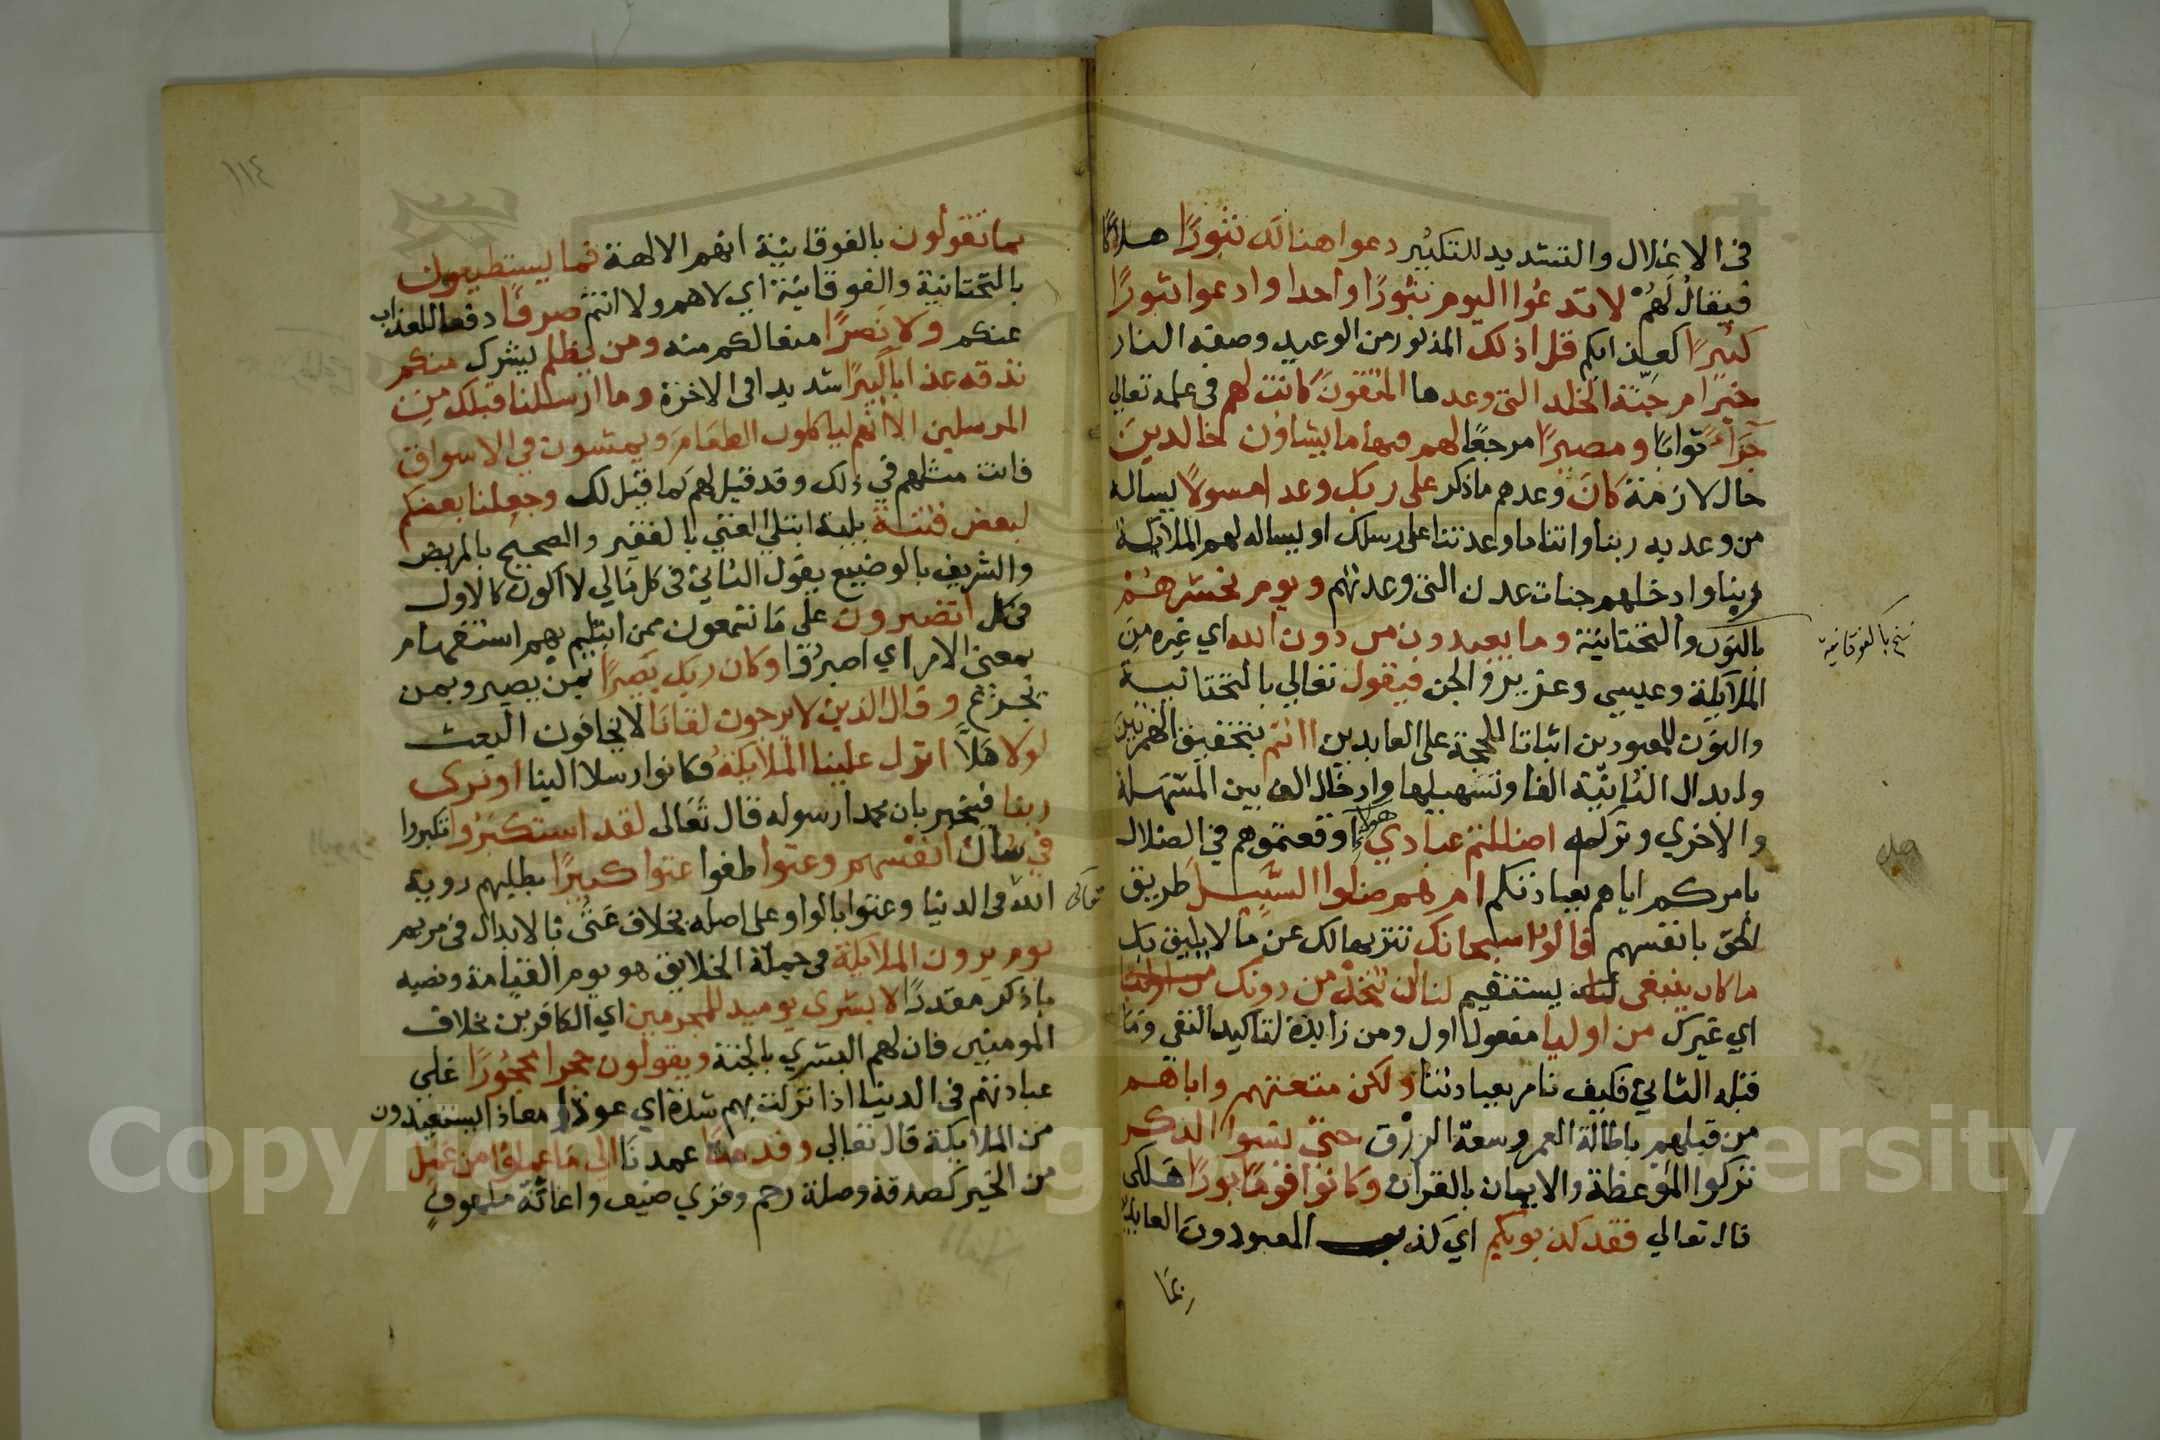 فى الاغلال والتشديد للتكثير دعوا هنالك ثبورًا هلاكًا
فيقال لهم لا تدعوا اليوم ثبورًا واحدا وادعوا ثبورًا
كثيرًا كعذابكم قل اذلك المذكور من الوعيد وصفه النار
خير ام جنة الخلد التى وعدها المتقون كانت لهم فى علمه تعالي
جزآء ثوابًا ومصيرًا مرجعًا لهم فيها ما يشاؤن خالدين
حال لازمة كان وعدهم ما ذكر على ربك وعدا مسولا يساله
من وعد به ربنا واتنا ما وعدتنا على رسلك او يساله لهم الملايكة
ربنا وادخلهم جنات عدن التى وعدتهم ويوم نحشرهم
بالنون والتحتانية وما يعبدون من دون الله اي غيره من
الملايكة وعيسى وعزير والجن فيقول تعالي بالتحتانية
والنون للمعبودين اثباتا للحجة على العابدين اانتم بتحقيق الهمزتين
وابدال الثانية الفا وتسهيلها وادخال الف بين المسهلة
والاخري وتركه اضللتم عبادي هؤلاء اوقعتموهم في الضلال
بامركم اياهم بعبادتكم ام هم ضلوا السبيل طريق
الحق بانفسهم قالوا سبحانك تنزيها لك عن ما لا يليق بك
ما كان ينبغى يستقيم لنا ان نتخذ من دونك
اي غيرك من اوليا مفعول اول ومن زايدة لتاكيد النفى وما
قبله الثاني فكيف نامر بعبادتنا ولكن متعتهم واباهم
من قبلهم باطالة العمر وسعة الرزق حتى نسوا الذكر
تركوا الموعظة والايمان بالقران وكانوا قومًا بورًا هلكى
قال تعالي فقد كذبوكم اي كذب المعبودون العابدين
بما
نسخ بالفوقانية
١١٤
بما تقولون بالفوقانية انهم الالهة فما يستطيعون
بالتحتانية والفوقانية اي لاهم ولا انتم صرفًا دفعا للعذاب
عنكم ولا نصرًا منعا لكم منه ومن يظلم يشرك منكم
نذقه عذابًا كبيرًا شديدا فى الاخرة وما ارسلنا قبلك من
المرسلين الا انهم لياكلون الطعام ويمشون في الاسواق
فانت مثلهم في ذلك وقد قيل لهم كما قيل لك وجعلنا بعضكم
لبعض فتنة بلية ابتلي الغني بالفقير والصحيح بالمريض
والشريف بالوضيع يقول الثاني فى كل مالي لا اكون كالاول
فى كل اتصبرون على ما تسمعون ممن ابتليتم بهم استفهام
بمعنى الامر اي اصبروا وكان ربك بصيرًا بمن يصبر وبمن
يجزع وقال الذين لا يرجون لقانا لا يخافون البعث
لولا هلا انزل علينا الملايكة فكانوا رسلا الينا او نرى
ربنا فيخبر بان محمدا رسوله قال تعالى لقد استكبروا تكبروا
في شان انفسهم وعتوا طغوا عتوا كبيرًا بطلبهم روية
الله تعالى فى الدنيا وعتوا بالواو على اصله بخلاف عتى بالابدال فى مريم
يوم يرون الملايكة فى جملة الخلايق هو يوم القيامة ونصبه
باذكر مقدرًا لا بشرى يوميذ للمجرمين اي الكافرين بخلاف
المومنين فان لهم البشري بالجنة ويقولون حجرا محجورًا على
عبادتهم فى الدنيا اذا نزلت بهم شدة اي عوذا معاذا يستعيذون
من الملايكة قال تعالي وقدمنا عمدنا الي ما عملوا من عمل
من الخير كصدقة وصلة رحم وقري ضيف واغاثة ملهوف